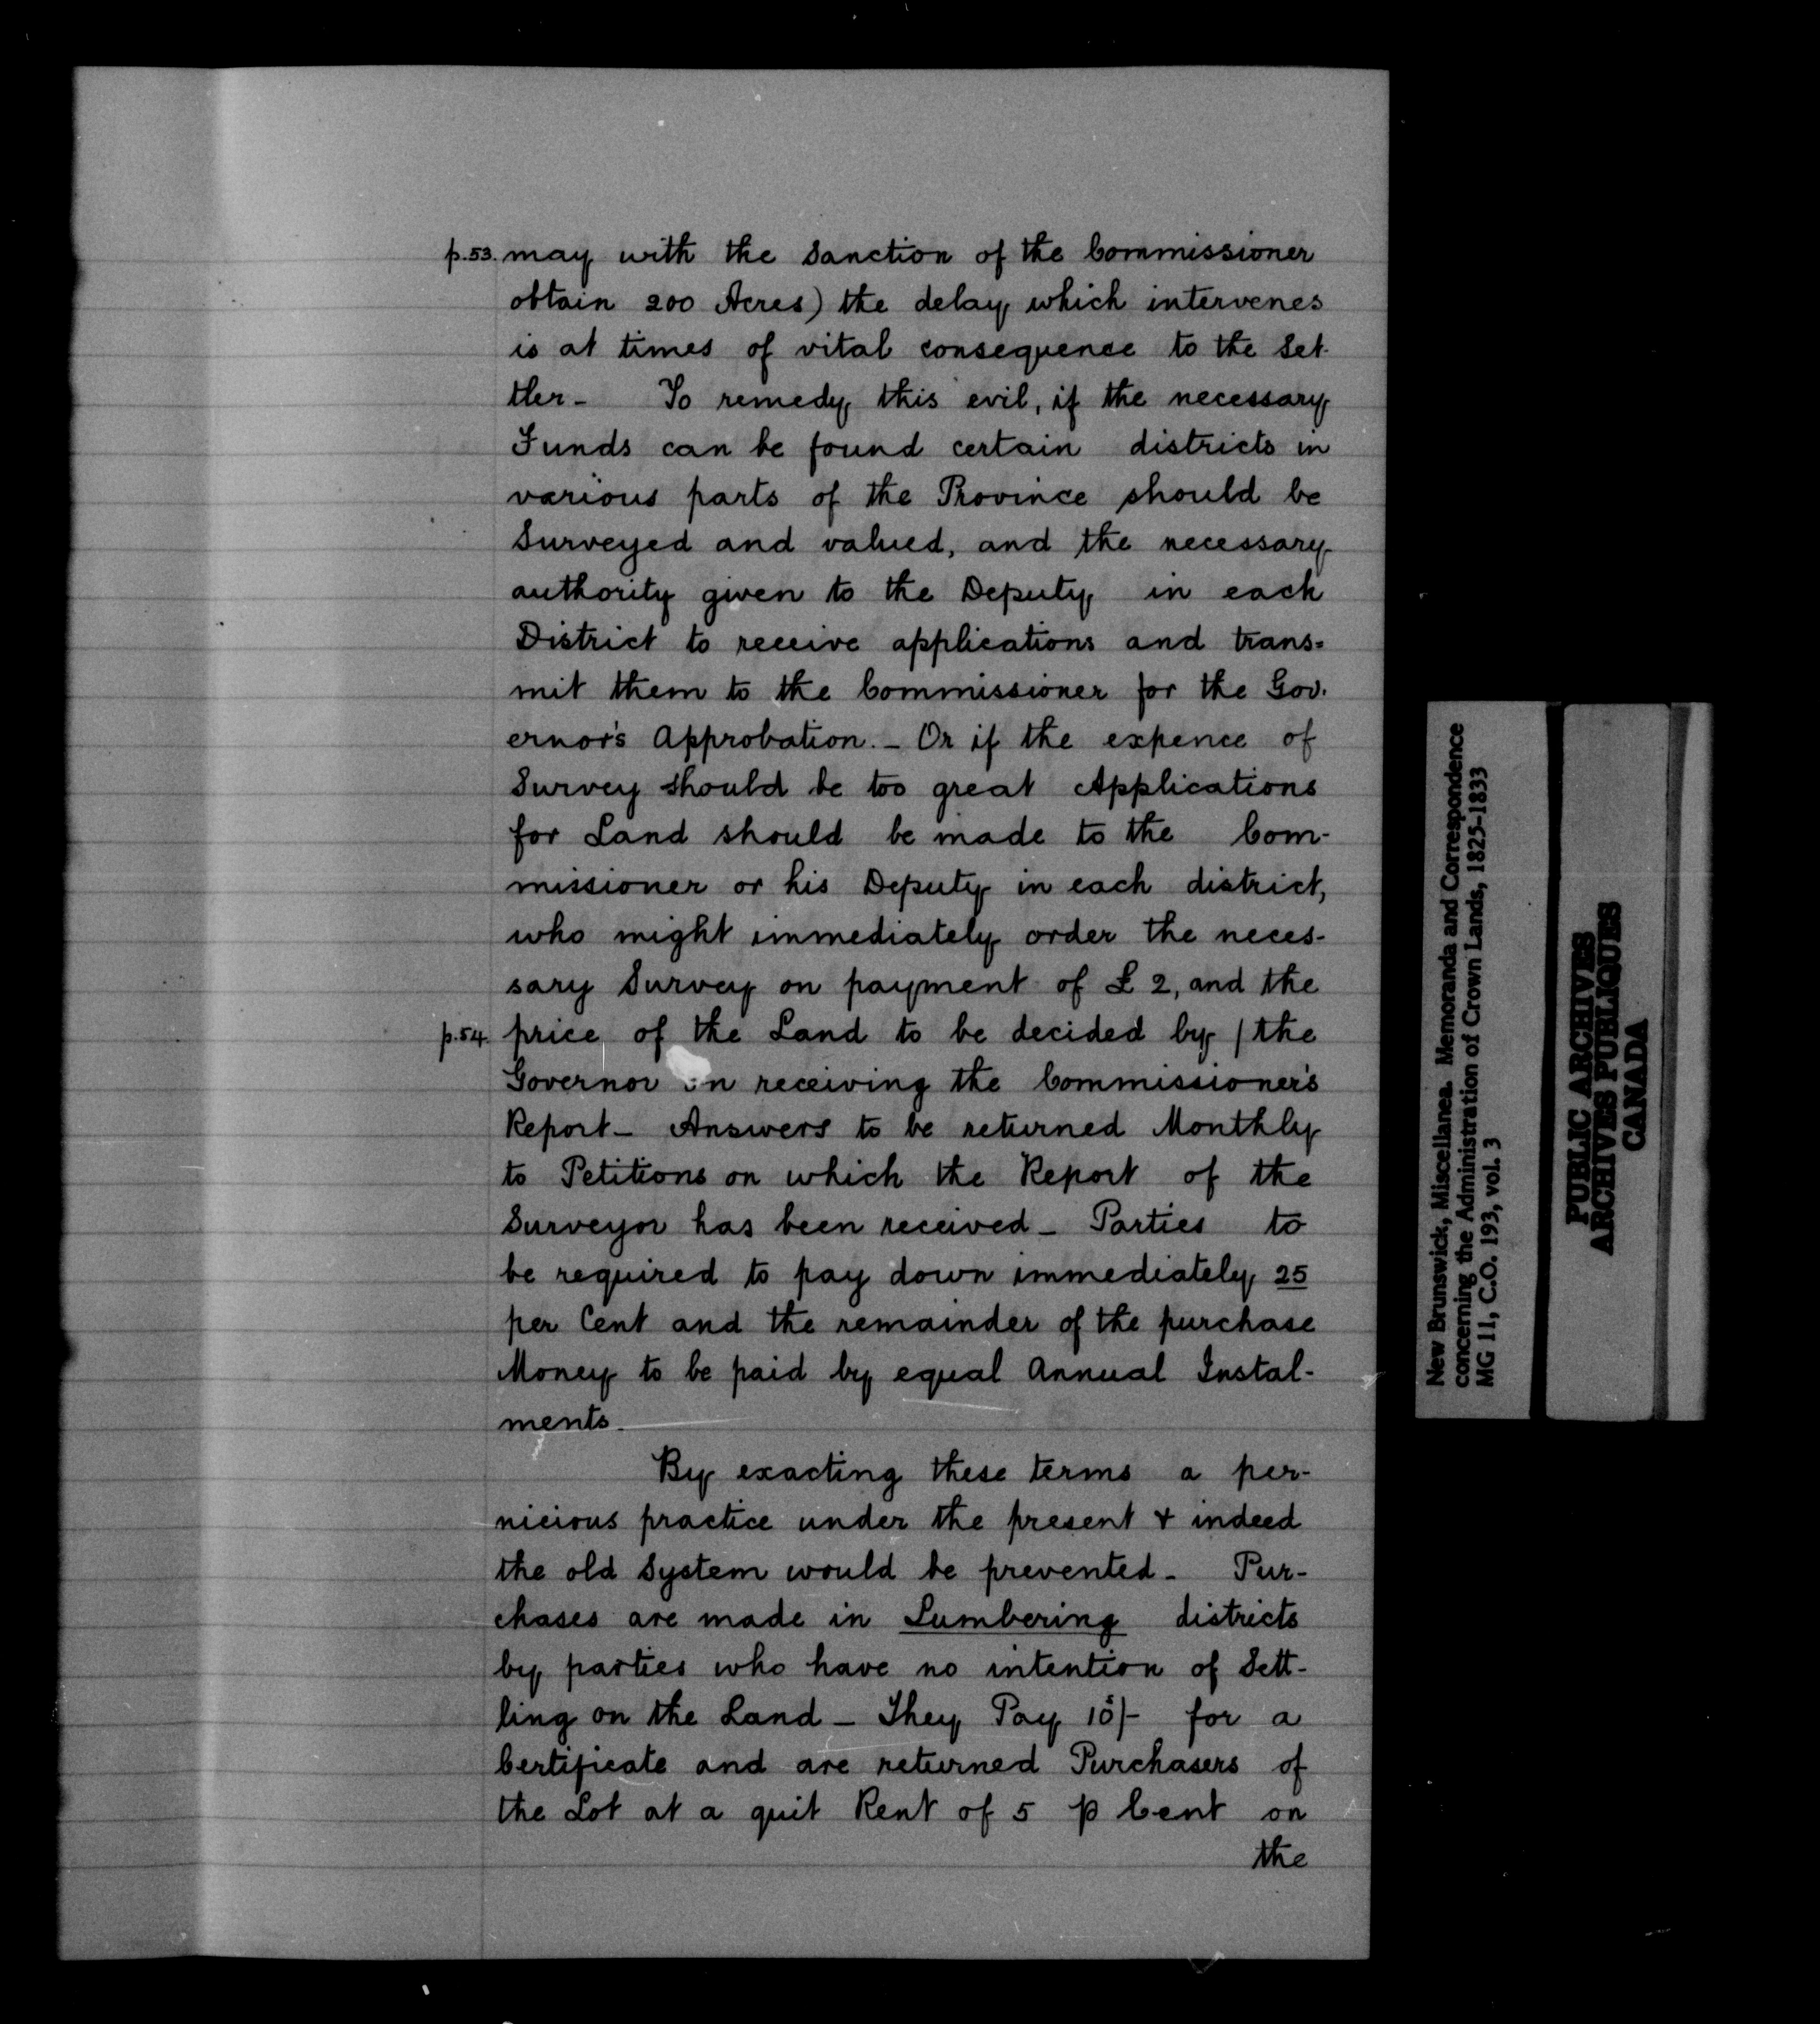 p.53. may with the Sanction of the Commissioner
obtain 200 Acres) the delay which intervenes
is at times of vital consequence to the Set-
tler - To remedy this evil, if the necessary
Funds can be found certain districts in
various parts of the Province should be
Surveyed and valued, and the necessary
authority given to the Deputy in each
District to receive applications and trans=
mit them to the Commissioner for the Gov.
ernor's Approbation. - Or if the expence of
Survey should be too great Applications
for Land should be made to the Com-
missioner or his Deputy in each district,
who might immediately order the neces-
sary Survey on payment of £ 2, and the
p.54. price of the Land to be decided by / the
Governor on receiving the Commissioner's
Report - Answers to be returned Monthly
to Petitions on which the Report of the
Surveyor has been received - Parties to
be required to pay down immediately 25
per Cent and the remainder of the purchase
Money to be paid by equal Annual Instal-
ments.
By exacting these terms a per-
nicious practice under the present & indeed
the old System would be prevented - Pur-
chases are made in Lumbering districts
by parties who have no intention of Sett-
ling on the Land - They Pay /- for a
Certificate and are returned Purchasers of
the Lot at a quit Rent of 5 p Cent on
the
New Brunswick, Miscellanea. Memoranda and Correspondence
concerning the Administration of Crown Lands, 1825-1833
MG 11, C.O. 193, vol. 3
PUBLIC ARCHIVES
ARCHIVES PUBLIQUES
CANADA